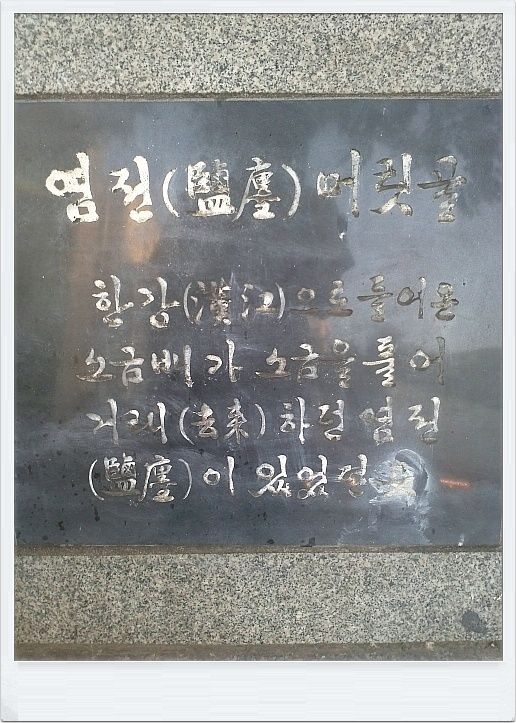 염전(鹽廛)머릿골
한강(漢江)으로 들어온
소금배가 소금을 풀어
거래(去來)하던 염전
(鹽廛)이 있었던